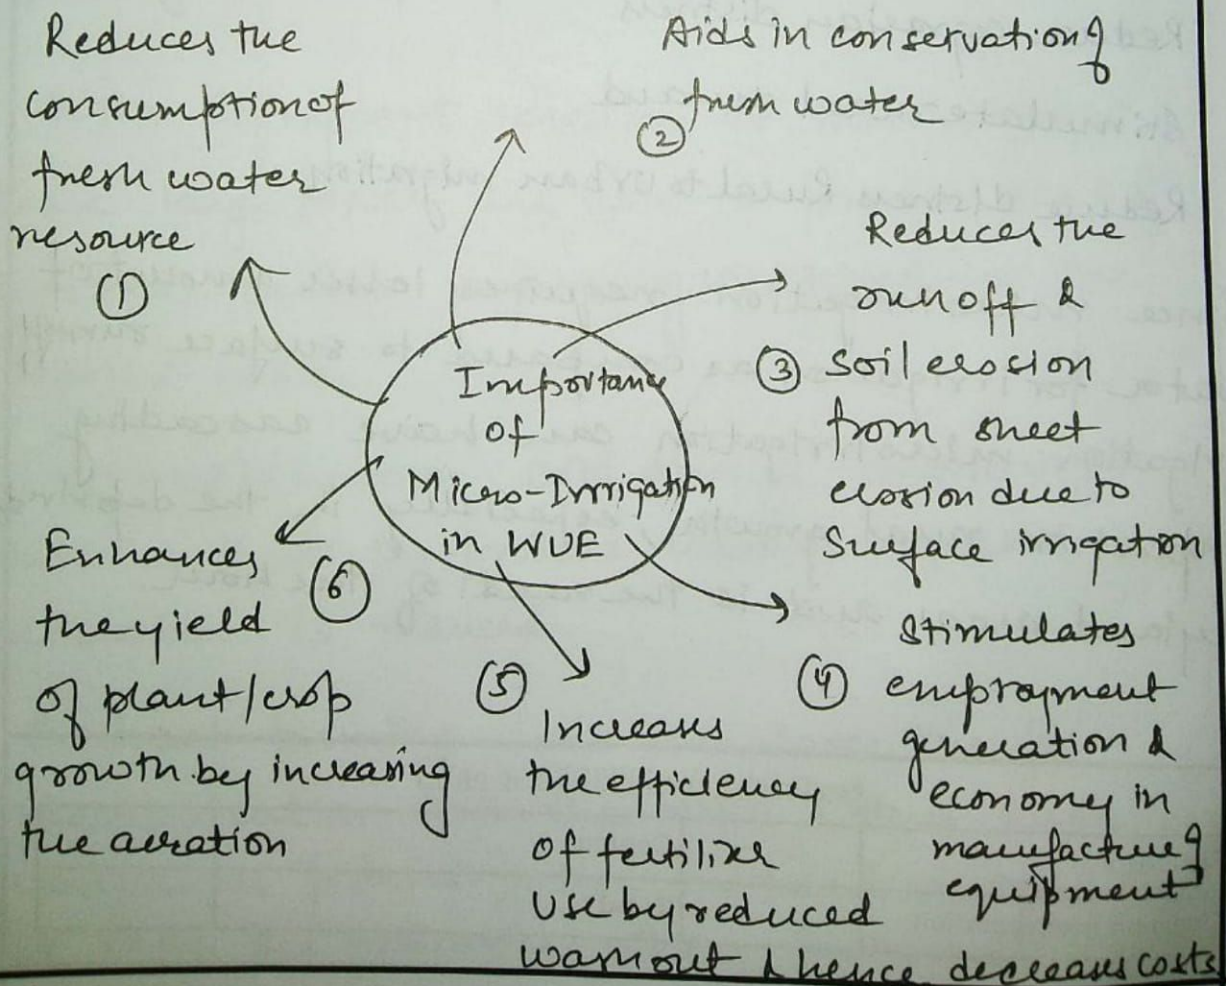 Reduces the
consumption of
fresh water
resource
①
Aids in conservation of
fresh water
②
Reduces the
run off &
③ Soil erosion
from sheet
erosion due to
Surface irrigation
Importance
of
Micro-Irrigation
in WUE
Stimulates
④ employment
generation &
economy in
manufacture of
equipment
⑤
Increases
the efficiency
of fertilizer
use by reduced
washout & hence decreases costs
Enhances
⑥
the yield
of plant/crop
growth by increasing
the aeration